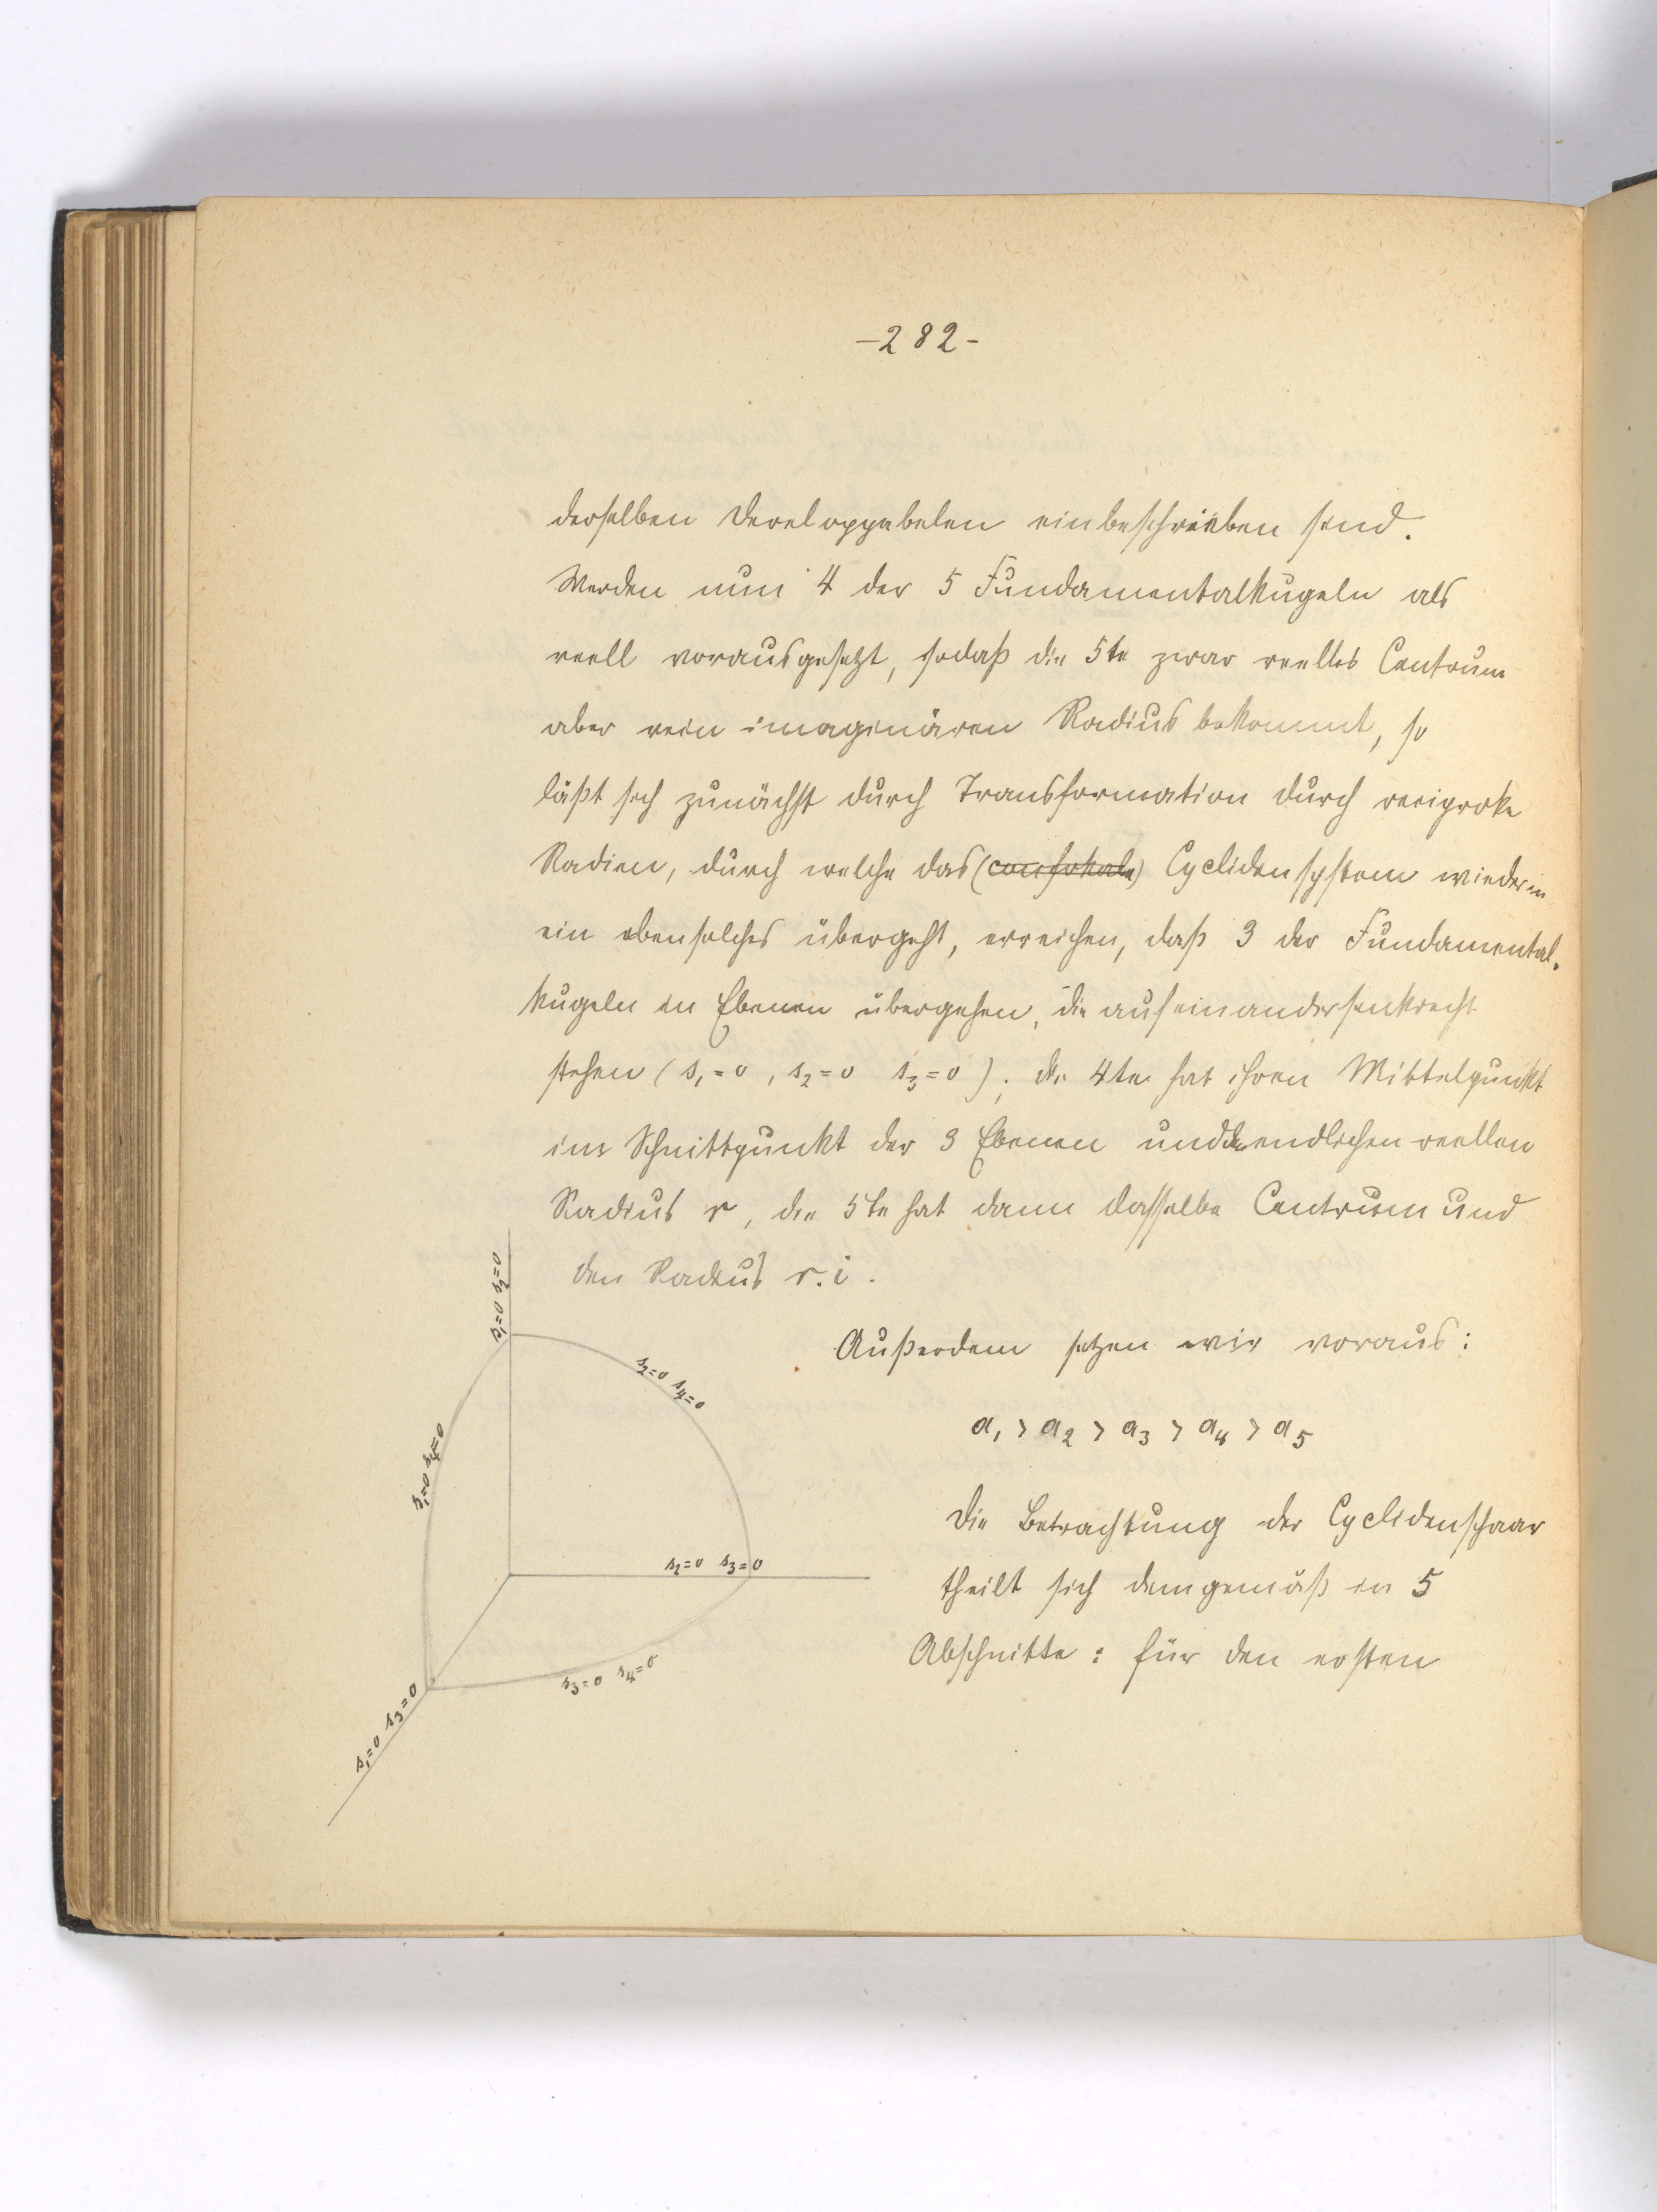 -282-
derselben Developpabelen einbeschrieben sind.
Werden nun 4 der 5 Fundamentalkugeln als
reell vorausgesetzt, sodaß die 5te zwar reelles Centrum
aber rein imaginären Radius bekommt, so
läßt sich zunächst durch Transformation durch reciproke
Radien, durch welche das (confokale) Cyclidensystem wieder in
ein ebensolches übergeht, erreichen, daß 3 der Fundamental-
kugeln in Ebenen übergehen, die aufeinander senkrecht
stehen (s₁=0, s₂=0 s₃=0); die 4te hat ihren Mittelpunkt
im Schnittpunkt der 3 Ebenen und den endlichen reellen
Radius r, die 5te hat dann dasselbe Centrum und
den Radius r.i.
s₁=0 s₂=0
Außerdem setzen wir voraus:
s₂=0 s₄=0
a₁ > a₂ > a₃ > a₄ > a₅
s₁=0 s₄=0
Die Betrachtung der Cyclidenschaar
s₂=0 s₃=0
theilt sich demgemäß in 5
Abschnitte: für den ersten
s₃=0 s₄=0
s₁=0 s₃=0